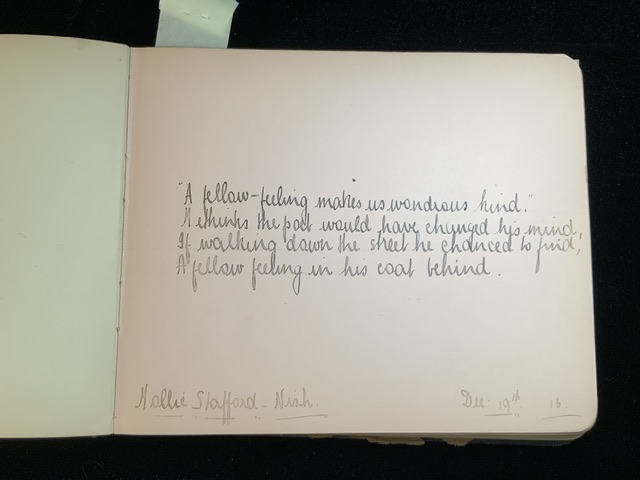 "A fellow-feeling makes us wondrous kind."
Methinks the poet would have changed his mind,
If walking down the street he chanced to find,
A fellow feeling in his coat behind.
Nallie Stafford - Nish.
Dec: 19th 16.